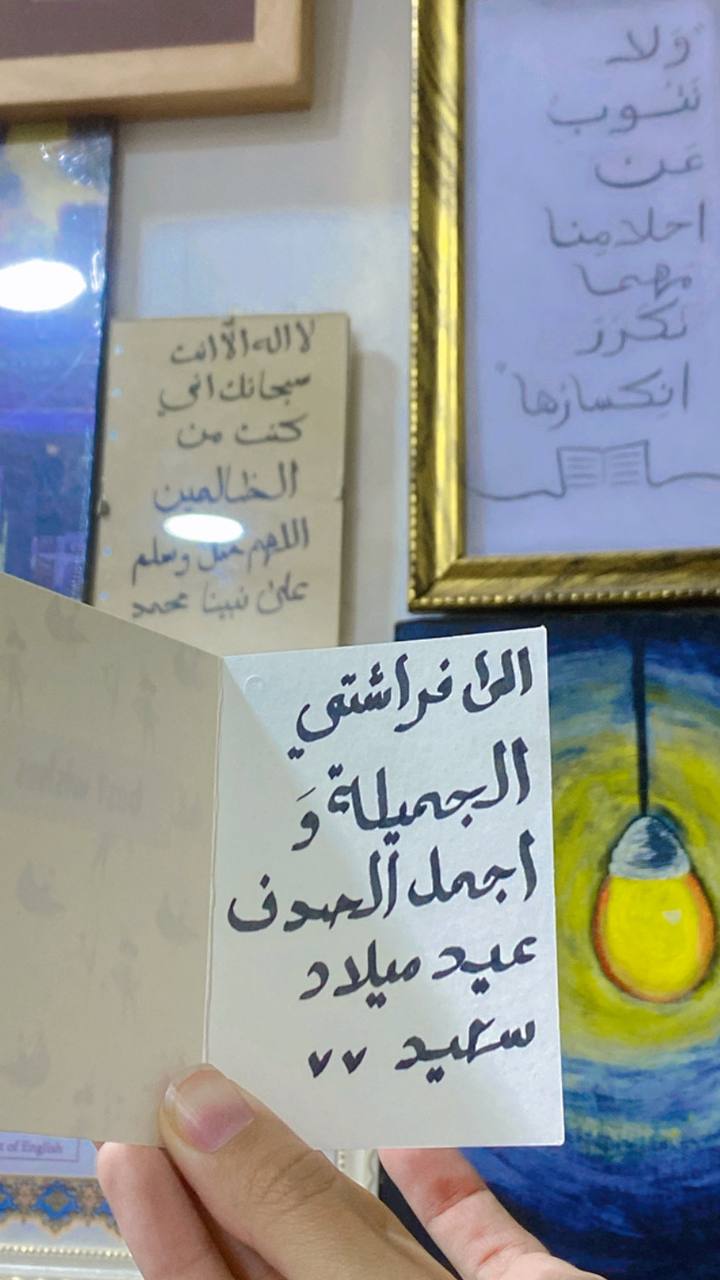 "وَلا
نَتــوب
عَـن
احلامِنا
مهمــا
تكرر
انكسارُها"
لا اله الّا انت
سبحانك اني
كنت من
الظــالمين
اللهم صل وسلم
على نبينا محمد
الى فراشتي
الجميلة وَ
اجمل الصدف
عيد ميلاد
سعيد ٧٧
of English